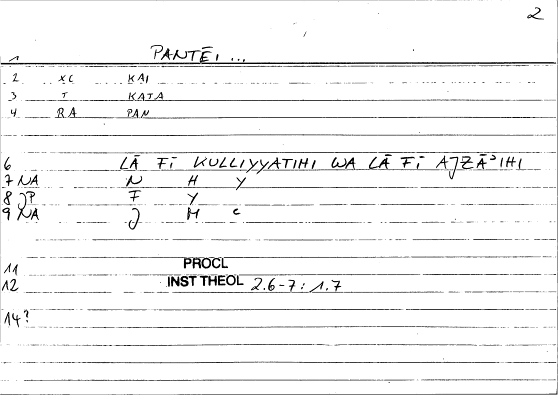 2
1 PANTĒI ...
2 XC KAI
3 T KATA
4 RA PAN
6 LĀ FĪ KULLIYYATIHI WA LĀ FĪ AJZĀʾIHI
7 NA N H Y
8 JP F Y
9 NA J M C
11 PROCL
12 INST THEOL 2.6-7: 1.7
14?